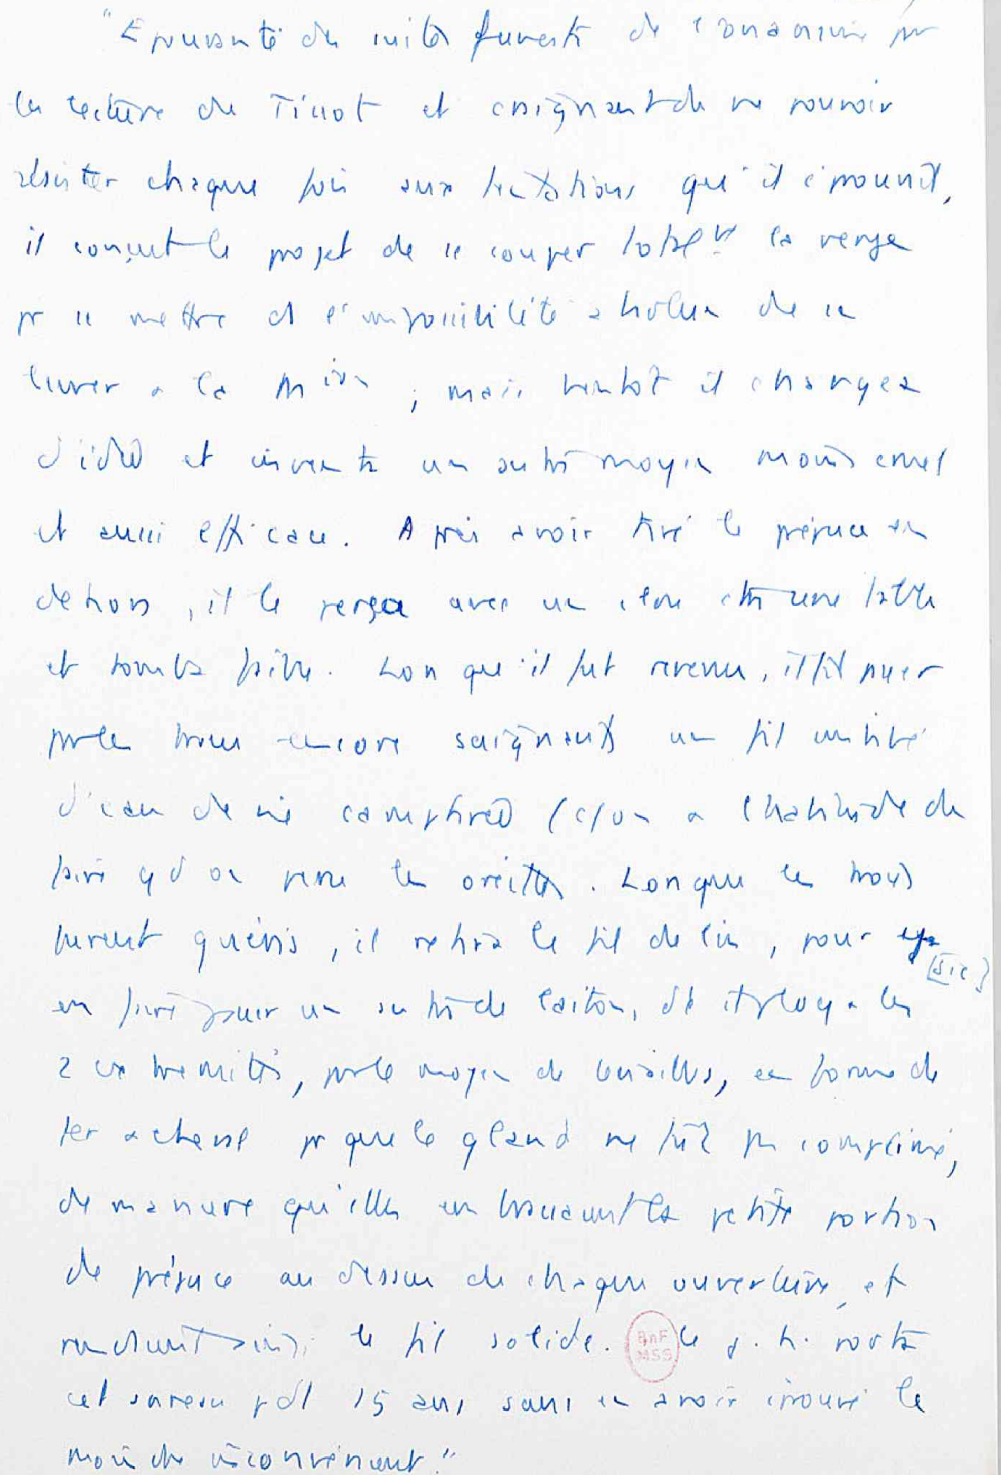 "Epouvanté des suites funestes de l'onanisme pr
la lecture de Tissot et craignant de ne pouvoir
résister chaque fois aux tentations qu'il éprouvait,
il conçut le projet de se couper totalt la verge
pr se mettre ds l'impossibilité absolue de se
livrer a la Mion ; mais bientôt il changea
d'idée et inventa un autre moyen moins cruel
et aussi efficace. Après avoir tiré le prépuce en
dehors, il le perça avec un clou une table
et tomba faible. Lors qu'il fut revenu, il fit passer
par les trous encore saignants un fil imbibé
d'eau de vie camphrée (c/ on a l'habitude de
faire qd on perce les oreilles. Lorsque les trous
furent guéris, il retira le fil de lin, pour
[sic]
en faire passer un autre de laiton, dt il ploya les
2 extrémités, par le moyen de tenailles, en forme de
fer a cheval pr que le gland ne fût pas comprimé,
de manière qu'elles embrassaient la petite portion
de prépuce au dessus de chaque ouverture, et
rendaient ainsi le fil solide. BnF MSS Le j. h. porta
cet anneau pdt 15 ans sans en avoir éprouvé le
moindre inconvénient."